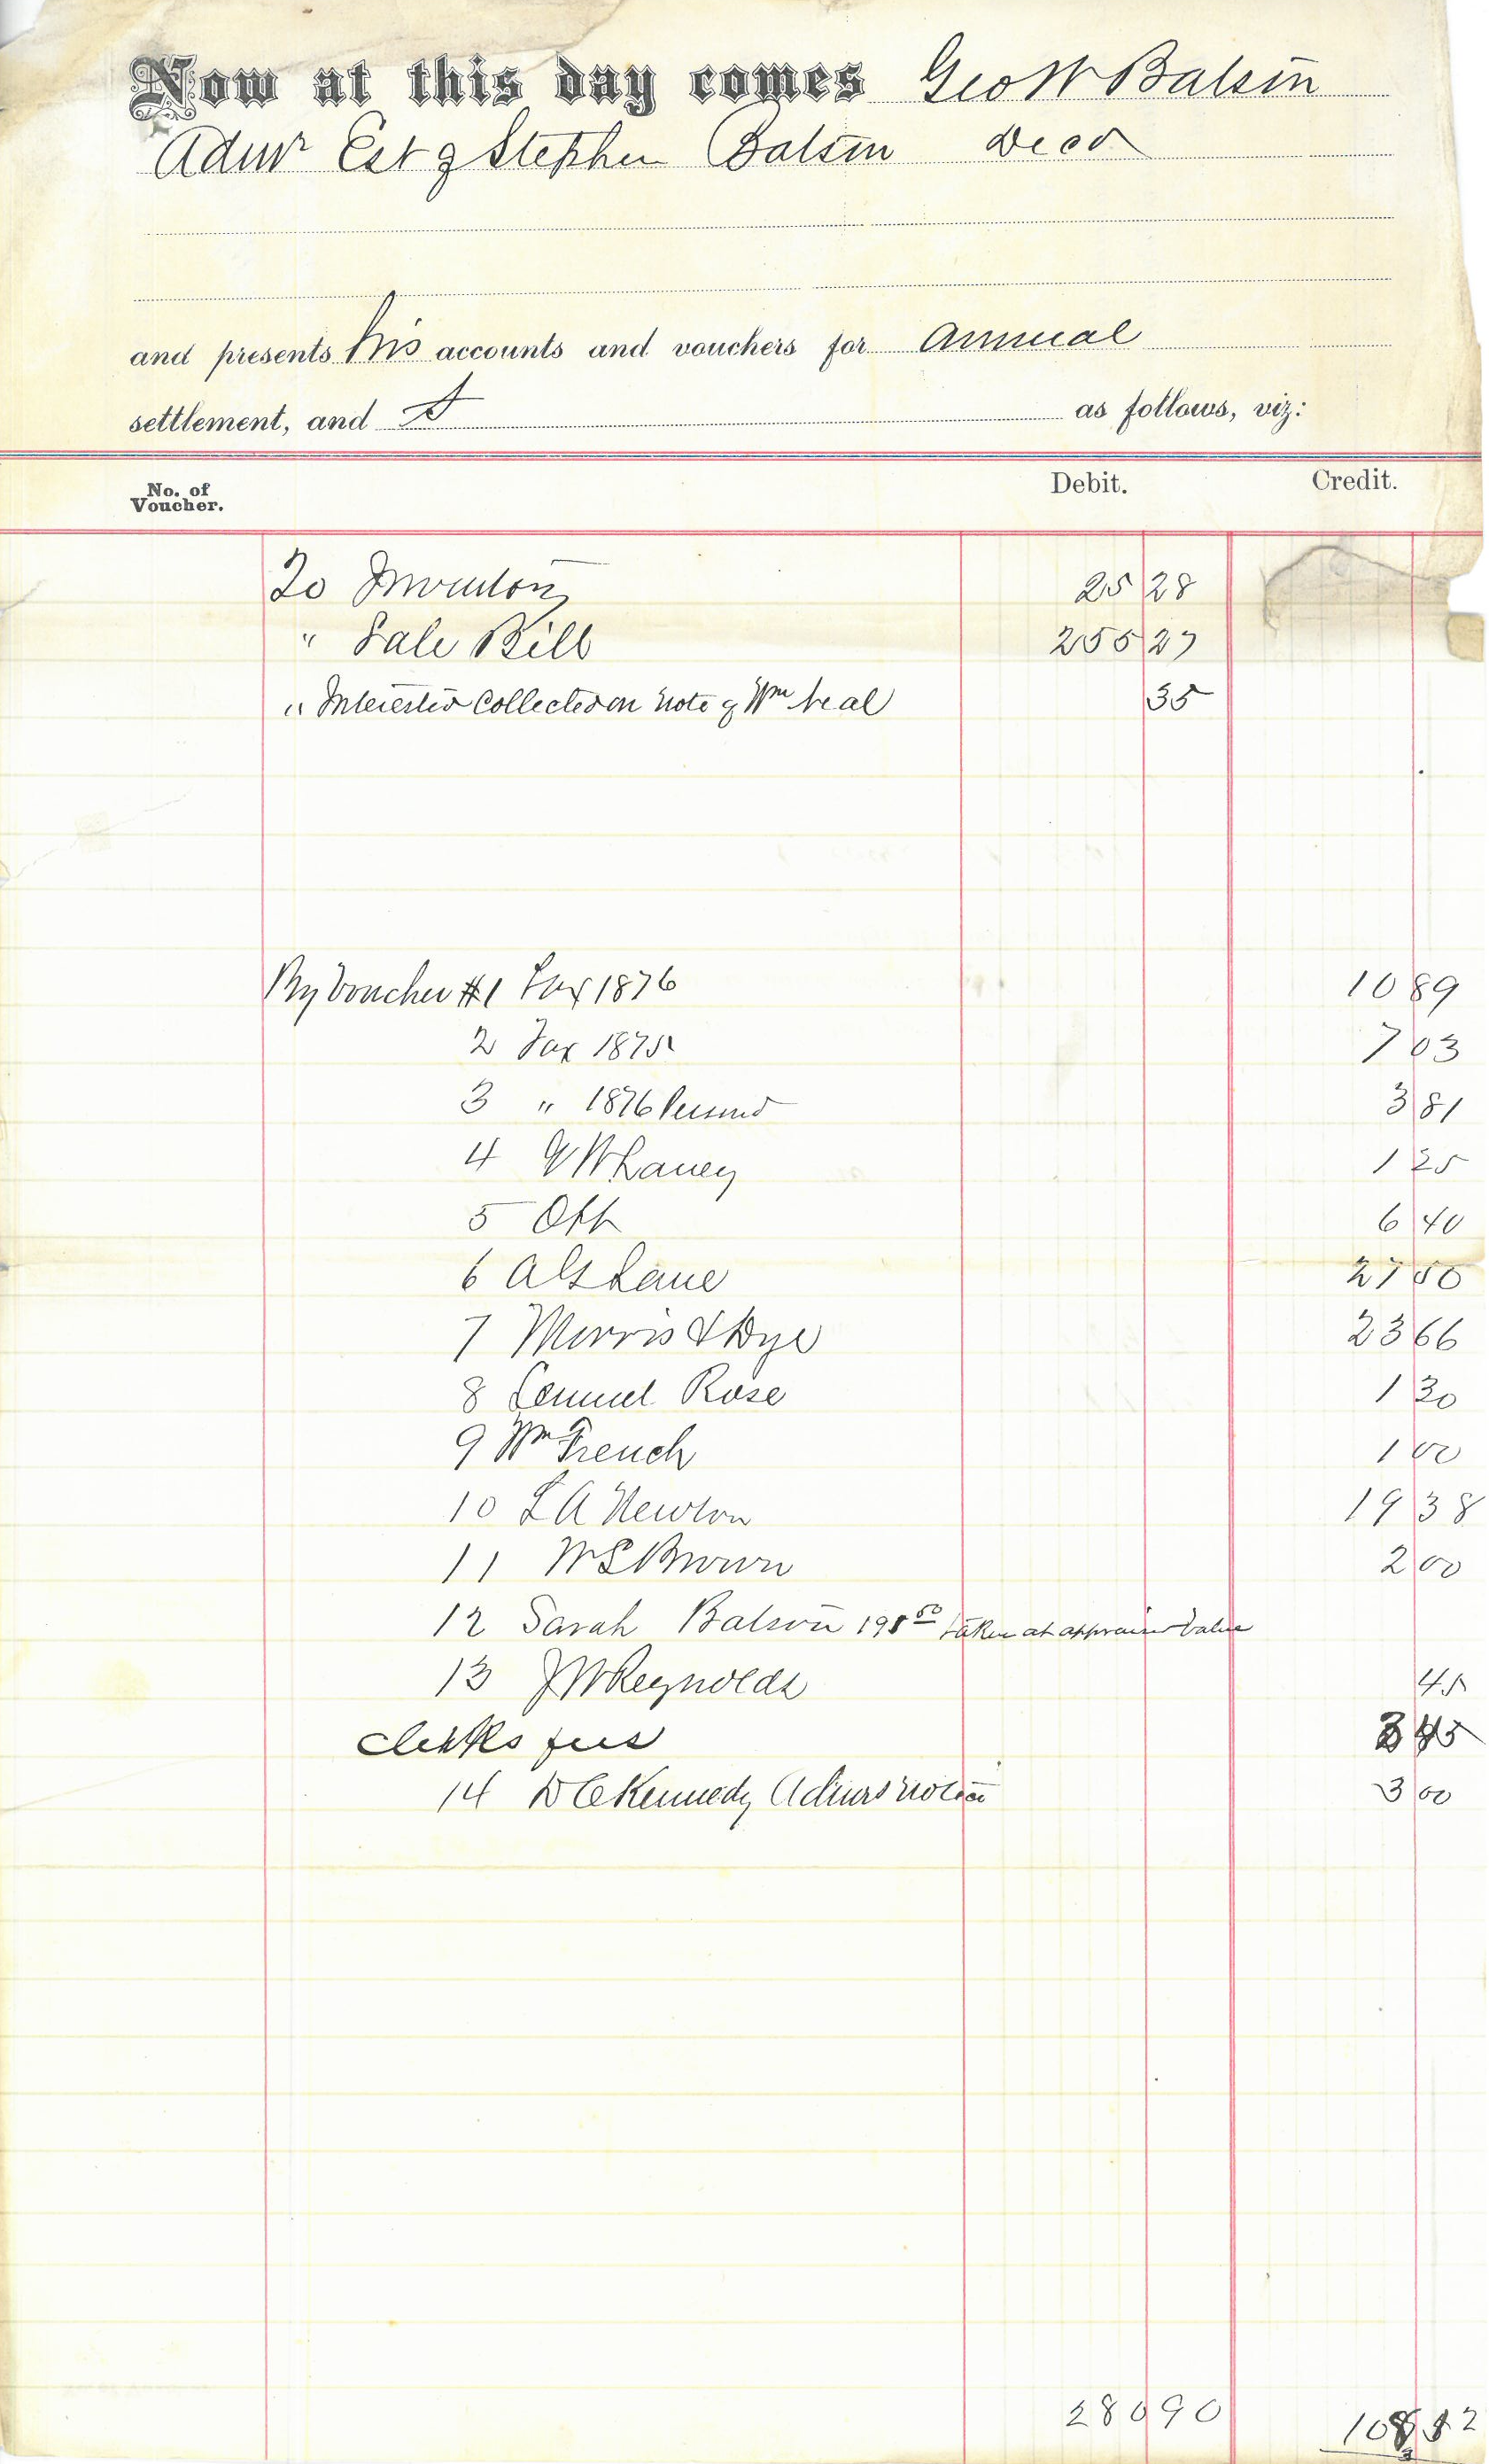 Now at this day comes Geo W Balsin
Admr Est of Stephen Balsin Decd
and presents his accounts and vouchers for annual
settlement, and as follows, viz:
No. of Voucher. Debit. Credit.
To Inventory 25 28
" Sale Bill 255 27
" Interest Collected on note of Wm Neal 35
By Voucher #1 Tax 1876 10 89
2 Tax 1875 7 03
3 " 1876 3 81
4 W Laney 1 25
5 Ott 6 40
6 Lane 27 50
7 Morris & Dye 23 66
8 Lemuel Rose 1 30
9 Wm French 1 00
10 L A Newton 19 38
11 W S Brown 2 00
12 Sarah Balson 198 50 taken at appraised value
13 J W Reynolds 45
Clerks fees 45
14 D C Kennedy Admrs notice 3 00
280 90